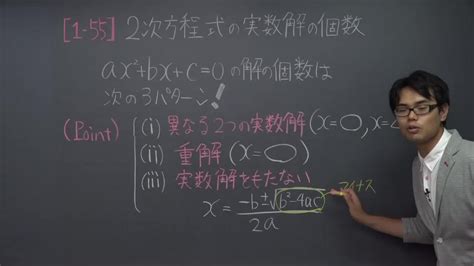 [1-55] 2次方程式の実数解の個数
ax²+bx+c=0の解の個数は
次の3パターン!
(Point) (i) 異なる2つの実数解(x=○,x=
(ii) 重解(x=○)
(iii) 実数解をもたない
x=(-b±√(b²-4ac))/2a マイナス